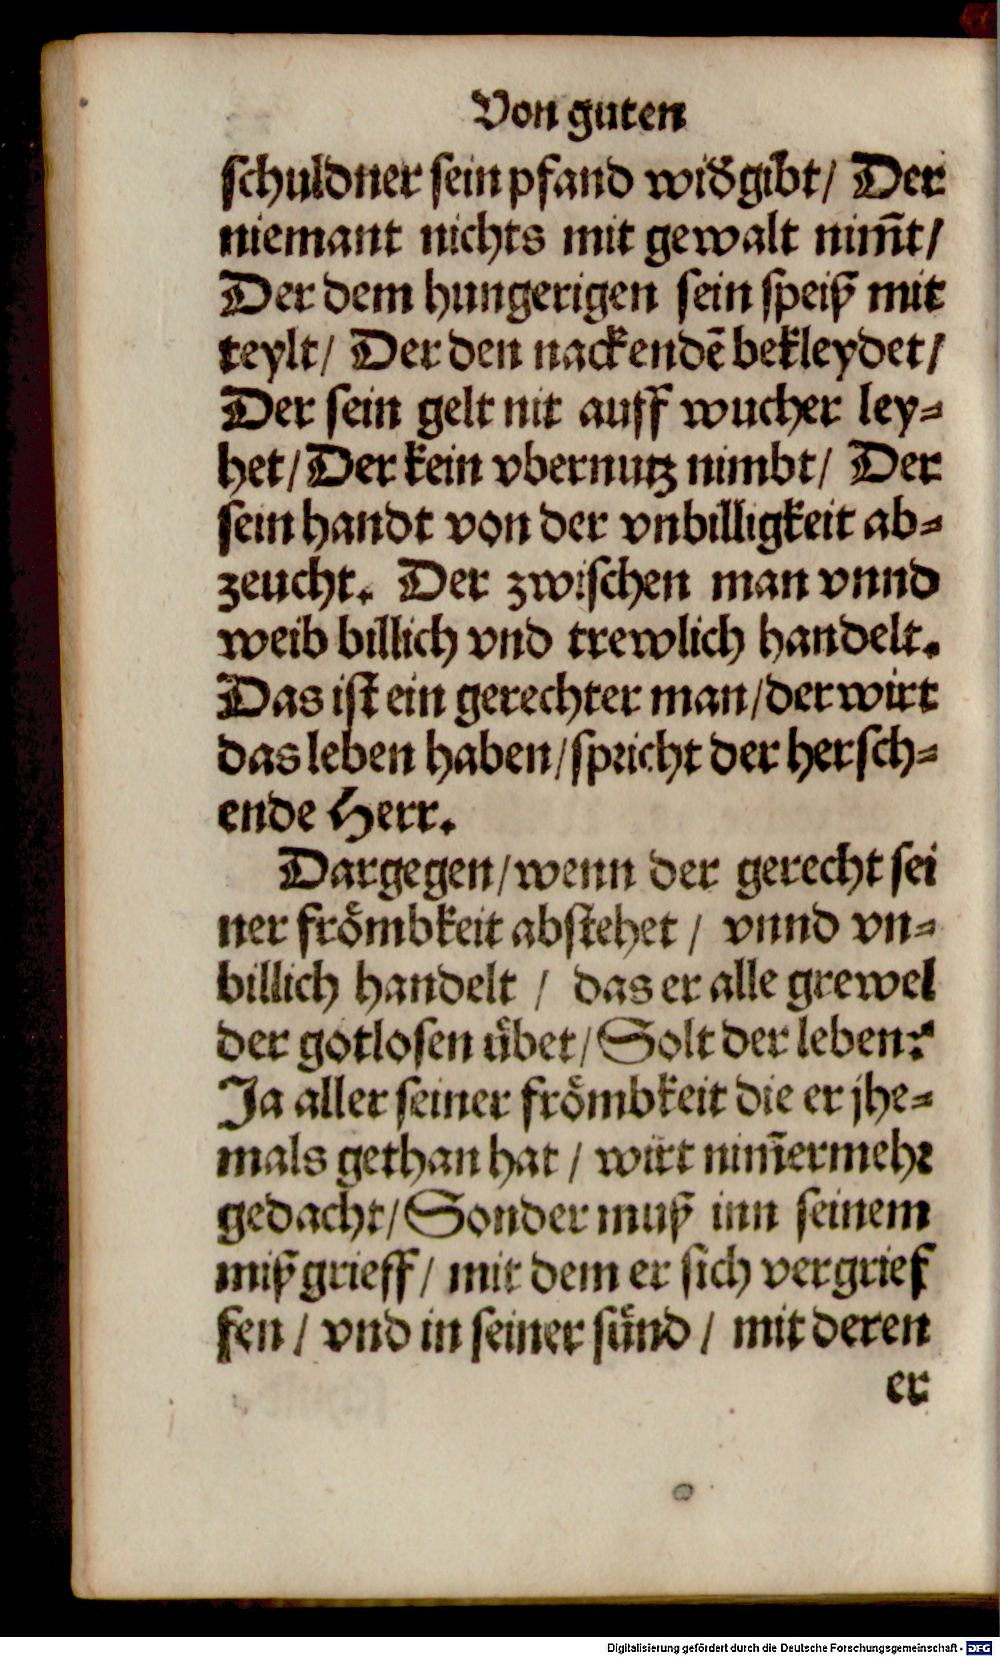 Von guten
schuldner sein pfand widgibt/ Der
niemant nichts mit gewalt nim̃t/
Der dem hungerigen sein speiß mit
teylt/ Der den nackendẽ bekleydet/
Der sein gelt nit auff wucher ley⸗
het/ Der kein vbernutz nimbt/ Der
sein handt von der vnbilligkeit ab⸗
zeucht. Der zwischen man vnnd
weib billich vnd trewlich handelt.
Das ist ein gerechter man/ der wirt
das leben haben/ spricht der hersch⸗
ende Herr.
Dargegen/ wenn der gerecht sei
ner frömbkeit abstehet / vnnd vn⸗
billich handelt / das er alle grewel
der gotlosen übet/ Solt der leben?
Ja aller seiner frömbkeit die er jhe⸗
mals gethan hat / wirt nim̃ermehr
gedacht/ Sonder muß inn seinem
mißgrieff/ mit dem er sich vergrief
fen / vnd in seiner sünd / mit deren
er
Digitalisierung gefördert durch die Deutsche Forschungsgemeinschaft - DFG